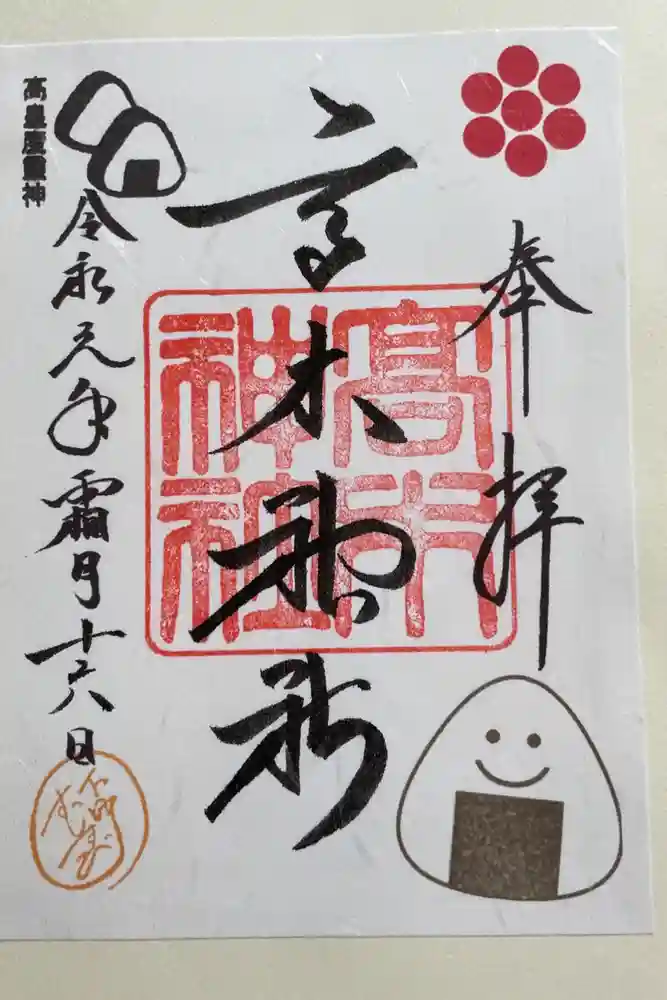 奉拝
高木神社
高木神社
令和元年霜月十六日
高皇産靈神